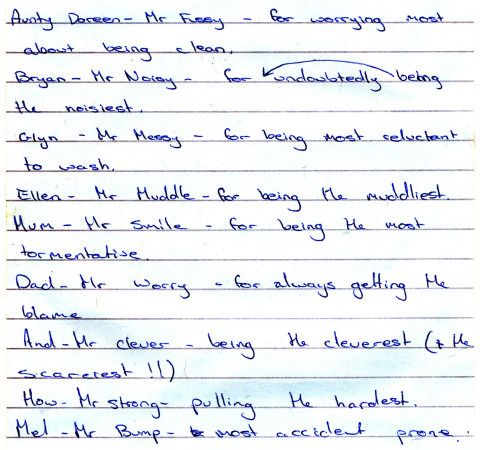 Aunty Doreen - Mr Fussy - for worrying most
about being clean.
Bryan - Mr Noisy - for undoubtedly being
the noisiest.
Glyn - Mr Messy - for being most reluctant
to wash.
Ellen - Mr Muddle - for being the muddliest.
Mum - Mr Smile - for being the most
tormentative.
Dad - Mr Worry - for always getting the
blame
And - Mr clever - being the cleverest (+ the
scarerest !!)
How - Mr strong - pulling the hardest.
Mel - Mr Bump - most accident prone.